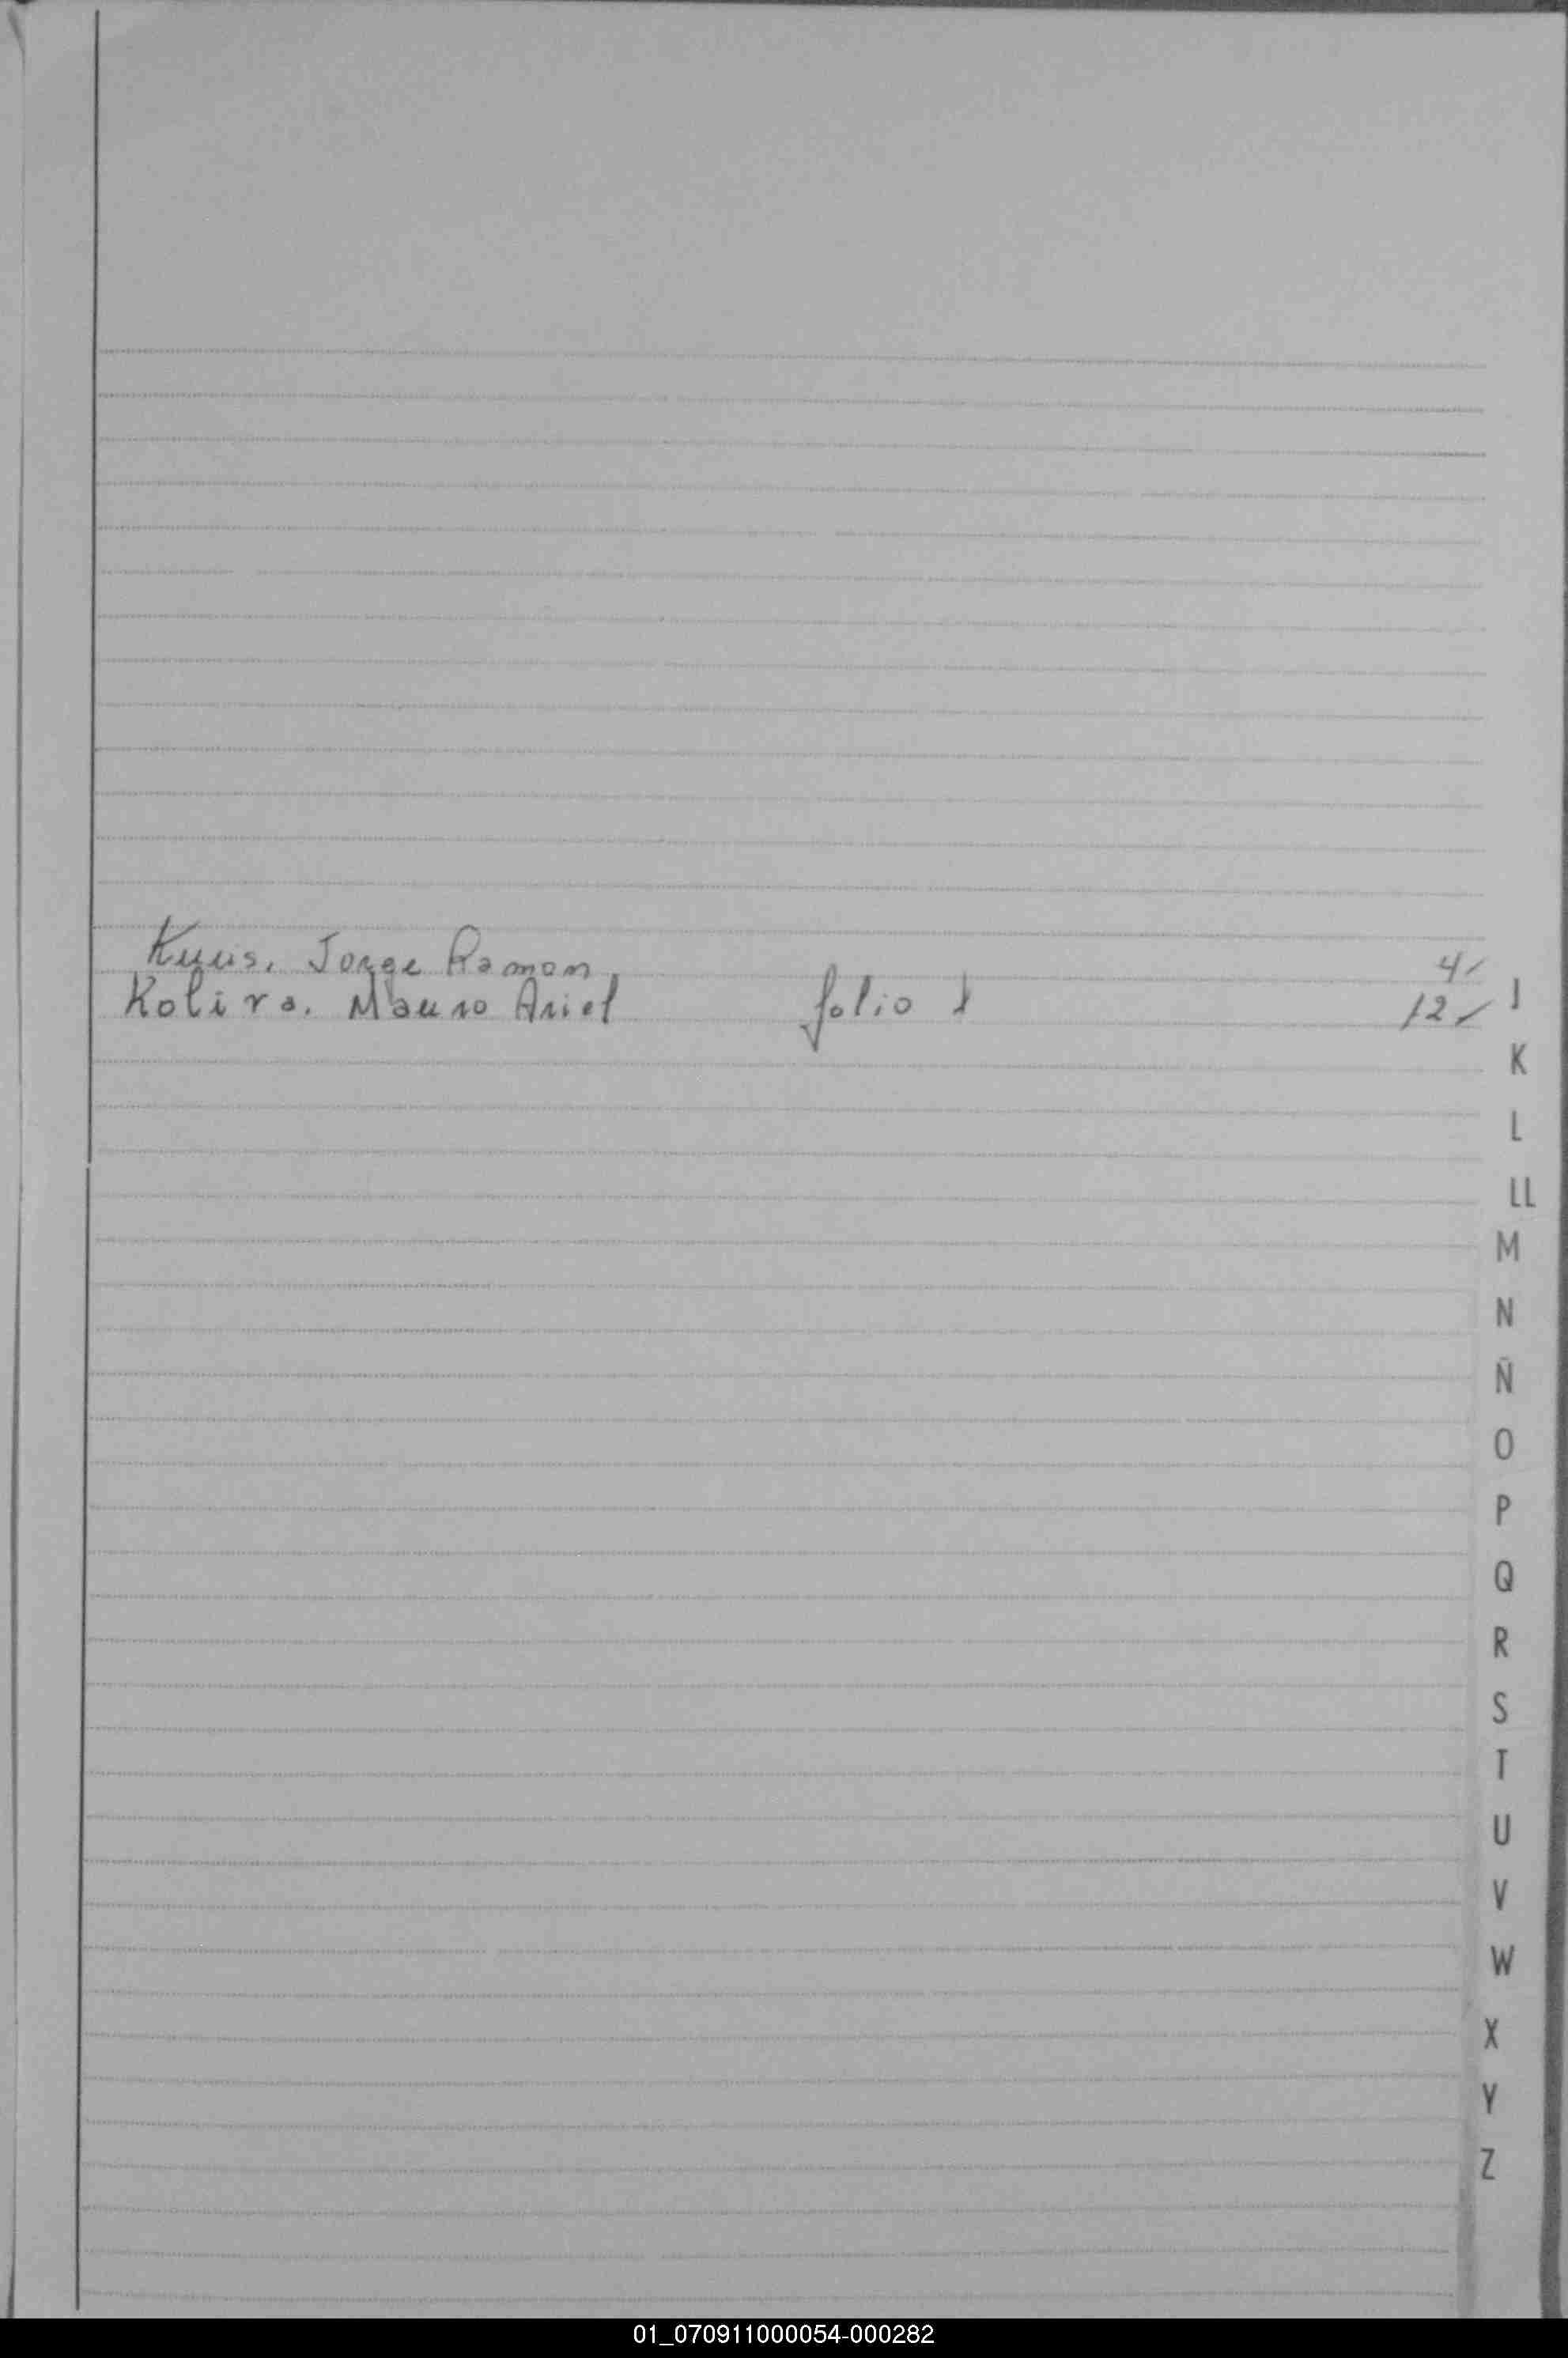 Kuus, Jorge Ramon 4/
Kolira, Mauro Ariel folio 1 12/
J
K
L
LL
M
N
Ñ
O
P
Q
R
S
T
U
V
W
X
Y
Z
01_070911000054-000282